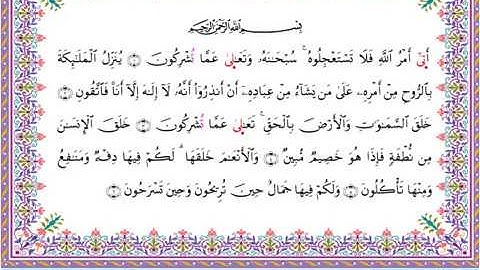 بِسْمِ اللَّهِ الرَّحْمَٰنِ الرَّحِيمِ
أَتَىٰ أَمْرُ اللَّهِ فَلَا تَسْتَعْجِلُوهُ ۚ سُبْحَانَهُ وَتَعَالَىٰ عَمَّا تُشْرِكُونَ ۝ يُنَزِّلُ الْمَلَائِكَةَ
بِالرُّوحِ مِنْ أَمْرِهِ عَلَىٰ مَن يَشَاءُ مِنْ عِبَادِهِ أَنْ أَنذِرُوا أَنَّهُ لَا إِلَٰهَ إِلَّا أَنَا فَاتَّقُونِ ۝
خَلَقَ السَّمَاوَاتِ وَالْأَرْضَ بِالْحَقِّ ۚ تَعَالَىٰ عَمَّا تُشْرِكُونَ ۝ خَلَقَ الْإِنسَانَ
مِن نُّطْفَةٍ فَإِذَا هُوَ خَصِيمٌ مُّبِينٌ ۝ وَالْأَنْعَامَ خَلَقَهَا ۗ لَكُمْ فِيهَا دِفْءٌ وَمَنَافِعُ
وَمِنْهَا تَأْكُلُونَ ۝ وَلَكُمْ فِيهَا جَمَالٌ حِينَ تُرِيحُونَ وَحِينَ تَسْرَحُونَ ۝